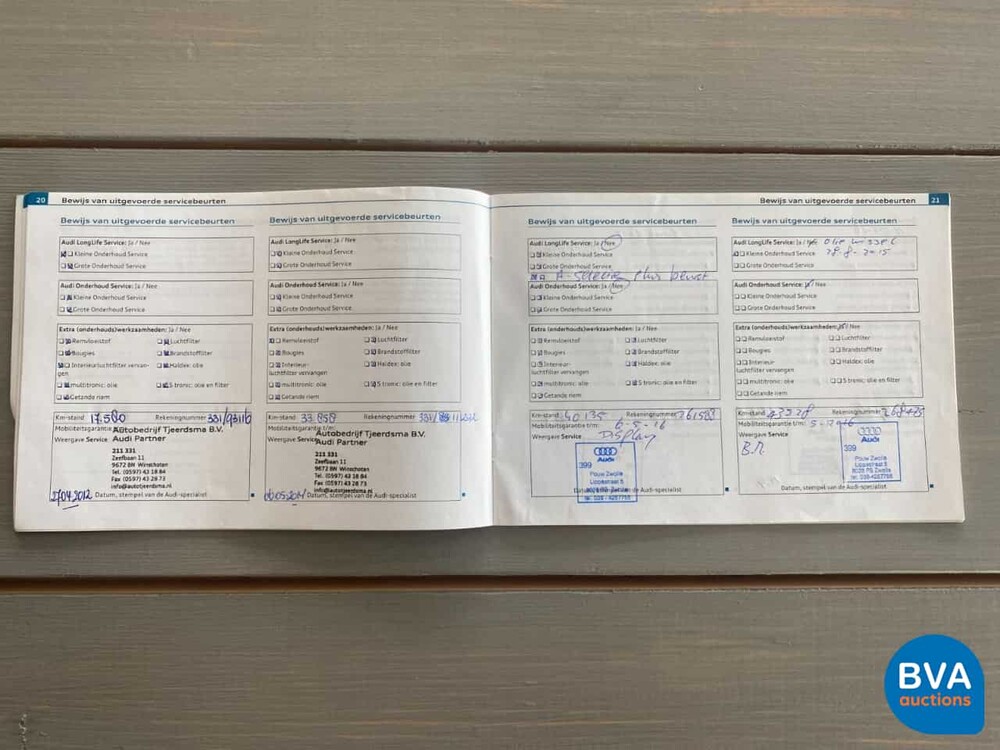 20 Bewijs van uitgevoerde servicebeurten
Bewijs van uitgevoerde servicebeurten
Audi LongLife Service: Ja / Nee
Kleine Onderhoud Service
Grote Onderhoud Service
Audi Onderhoud Service: Ja / Nee
Kleine Onderhoud Service
Grote Onderhoud Service
Extra (onderhouds)werkzaamheden: Ja / Nee
Remvloeistof Luchtfilter
Bougies Brandstoffilter
Interieurluchtfilter vervan- Haldex: olie
gen
multitronic: olie S tronic: olie en filter
Getande riem
Km-stand 17.580 Rekeningnummer 331/93116
Mobiliteitsgarantie
Weergave Service
Autobedrijf Tjeerdsma B.V.
Audi Partner
211 331
Zeefbaan 11
9672 BN Winschoten
Tel. (0597) 43 18 84
Fax (0597) 43 28 73
info@autotjeerdsma.nl
2012 Datum, stempel van de Audi-specialist
Bewijs van uitgevoerde servicebeurten
Audi LongLife Service: Ja / Nee
Kleine Onderhoud Service
Grote Onderhoud Service
Audi Onderhoud Service: Ja / Nee
Kleine Onderhoud Service
Grote Onderhoud Service
Extra (onderhouds)werkzaamheden: Ja / Nee
Remvloeistof Luchtfilter
Bougies Brandstoffilter
Interieur- Haldex: olie
luchtfilter vervangen
multitronic: olie S tronic: olie en filter
Getande riem
Km-stand Rekeningnummer
Mobiliteitsgarantie t/m:
Weergave Service
Autobedrijf Tjeerdsma B.V.
Audi Partner
211 331
Zeefbaan 11
9672 BN Winschoten
Tel. (0597) 43 18 84
Fax (0597) 43 28 73
info@autotjeerdsma.nl
Datum, stempel van de Audi-specialist
Bewijs van uitgevoerde servicebeurten 21
Bewijs van uitgevoerde servicebeurten
Audi LongLife Service: Ja / Nee
Kleine Onderhoud Service
Grote Onderhoud Service
Audi Onderhoud Service: Ja / Nee
Kleine Onderhoud Service
Grote Onderhoud Service
Extra (onderhouds)werkzaamheden: Ja / Nee
Remvloeistof Luchtfilter
Bougies Brandstoffilter
Interieur- Haldex: olie
luchtfilter vervangen
multitronic: olie S tronic: olie en filter
Getande riem
Km-stand 40135 Rekeningnummer 261588
Mobiliteitsgarantie t/m: 6-5-16
Weergave Service Display
Audi
399
Pouw Zwolle
Datum, stempel van de Audi-specialist
Bewijs van uitgevoerde servicebeurten
Audi LongLife Service: Ja / Nee
Kleine Onderhoud Service 28-8-2015
Grote Onderhoud Service
Audi Onderhoud Service: Ja / Nee
Kleine Onderhoud Service
Grote Onderhoud Service
Extra (onderhouds)werkzaamheden: Ja / Nee
Remvloeistof Luchtfilter
Bougies Brandstoffilter
Interieur- Haldex: olie
luchtfilter vervangen
multitronic: olie S tronic: olie en filter
Getande riem
Km-stand 43228 Rekeningnummer
Mobiliteitsgarantie t/m:
Weergave Service
Audi
399
Pouw Zwolle
Datum, stempel van de Audi-specialist
BVA
auctions